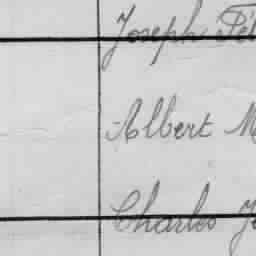 Joseph
Albert
Charles